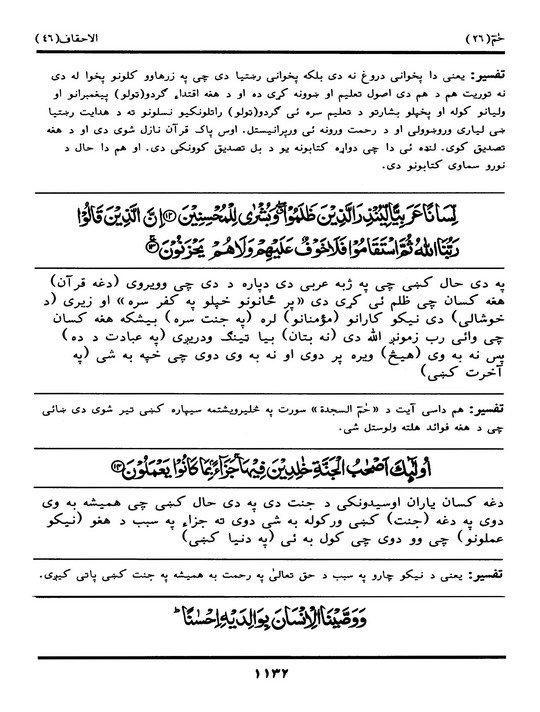 حٰمٓ (٢٦) الاحقاف (٤٦)
تفسیر: یعنی دا پخوانی دروغ نه دی بلکه پخوانی رښتیا دی چې په زرهاوو کلونو پخوا له دی
نه توریت هم د هم دی اصول تعلیم او ښوونه کړی ده او د هغه اقتداء ګردو(تولو) پیغمبرانو او
ولیانو کوله او پخپلو بشارتو د تعلیم سره ئی ګردو(تولو) راتلونکیو نسلونو ته د هدایت رښتیا
ښی لیاری وروښوولی او د رحمت ورونه ئی ورپرانیستل. اوس پاک قرآن نازل شوی دی او د هغه
تصدیق کوی. لنډه ئی دا چې دواړه کتابونه یو د بل تصدیق کوونکی دی. او هم دا حال د
نورو سماوی کتابونو دی.
لِسَانًا عَرَبِیًّا لِّیُنْذِرَ الَّذِیْنَ ظَلَمُوْا ۖ وَبُشْرٰی لِلْمُحْسِنِیْنَ ﴿۱۲﴾ اِنَّ الَّذِیْنَ قَالُوْا
رَبُّنَا اللّٰهُ ثُمَّ اسْتَقَامُوْا فَلَا خَوْفٌ عَلَیْهِمْ وَلَا هُمْ یَحْزَنُوْنَ ﴿۱۳﴾
په دی حال کښی چې په ژبه عربی دی دپاره د دی چې وویروی (دغه قرآن)
هغه کسان چې ظلم ئی کړی دی «پر ځانونو خپلو په کفر سره» او زیری (د
خوشالی) دی نیکو کارانو (مؤمنانو) لره (په جنت سره) بیشکه هغه کسان
چې وائی رب زمونږ الله دی (نه بتان) بیا ټینګ ودریږی (په عبادت د ده)
پس نه به وی (هیڅ) ویره پر دوی او نه به وی دوی چې خپه به شی (په
آخرت کښی)
تفسیر: هم داسی آیت د «حٰمٓ السجدة» سورت په څلیرویشتمه سیپاره کښی تیر شوی دی ښائی
چې د هغه فوائد هلته ولوستل شی.
اُولٰٓئِكَ اَصْحٰبُ الْجَنَّةِ خٰلِدِیْنَ فِیْهَا ۚ جَزَآءًۢ بِمَا كَانُوْا یَعْمَلُوْنَ ﴿۱۴﴾
دغه کسان یاران اوسیدونکی د جنت دی په دی حال کښی چې همیشه به وی
دوی په دغه (جنت) کښی ورکوله به شی دوی ته جزاء په سبب د هغو (نیکو
عملونو) چې وو دوی چې کول به ئی (په دنیا کښی)
تفسیر: یعنی د نیکو چارو په سبب د حق تعالیٰ په رحمت به همیشه په جنت کښی پاتی کیږی.
وَوَصَّیْنَا الْاِنْسَانَ بِوَالِدَیْهِ اِحْسٰنًا ؕ
١١٣٢